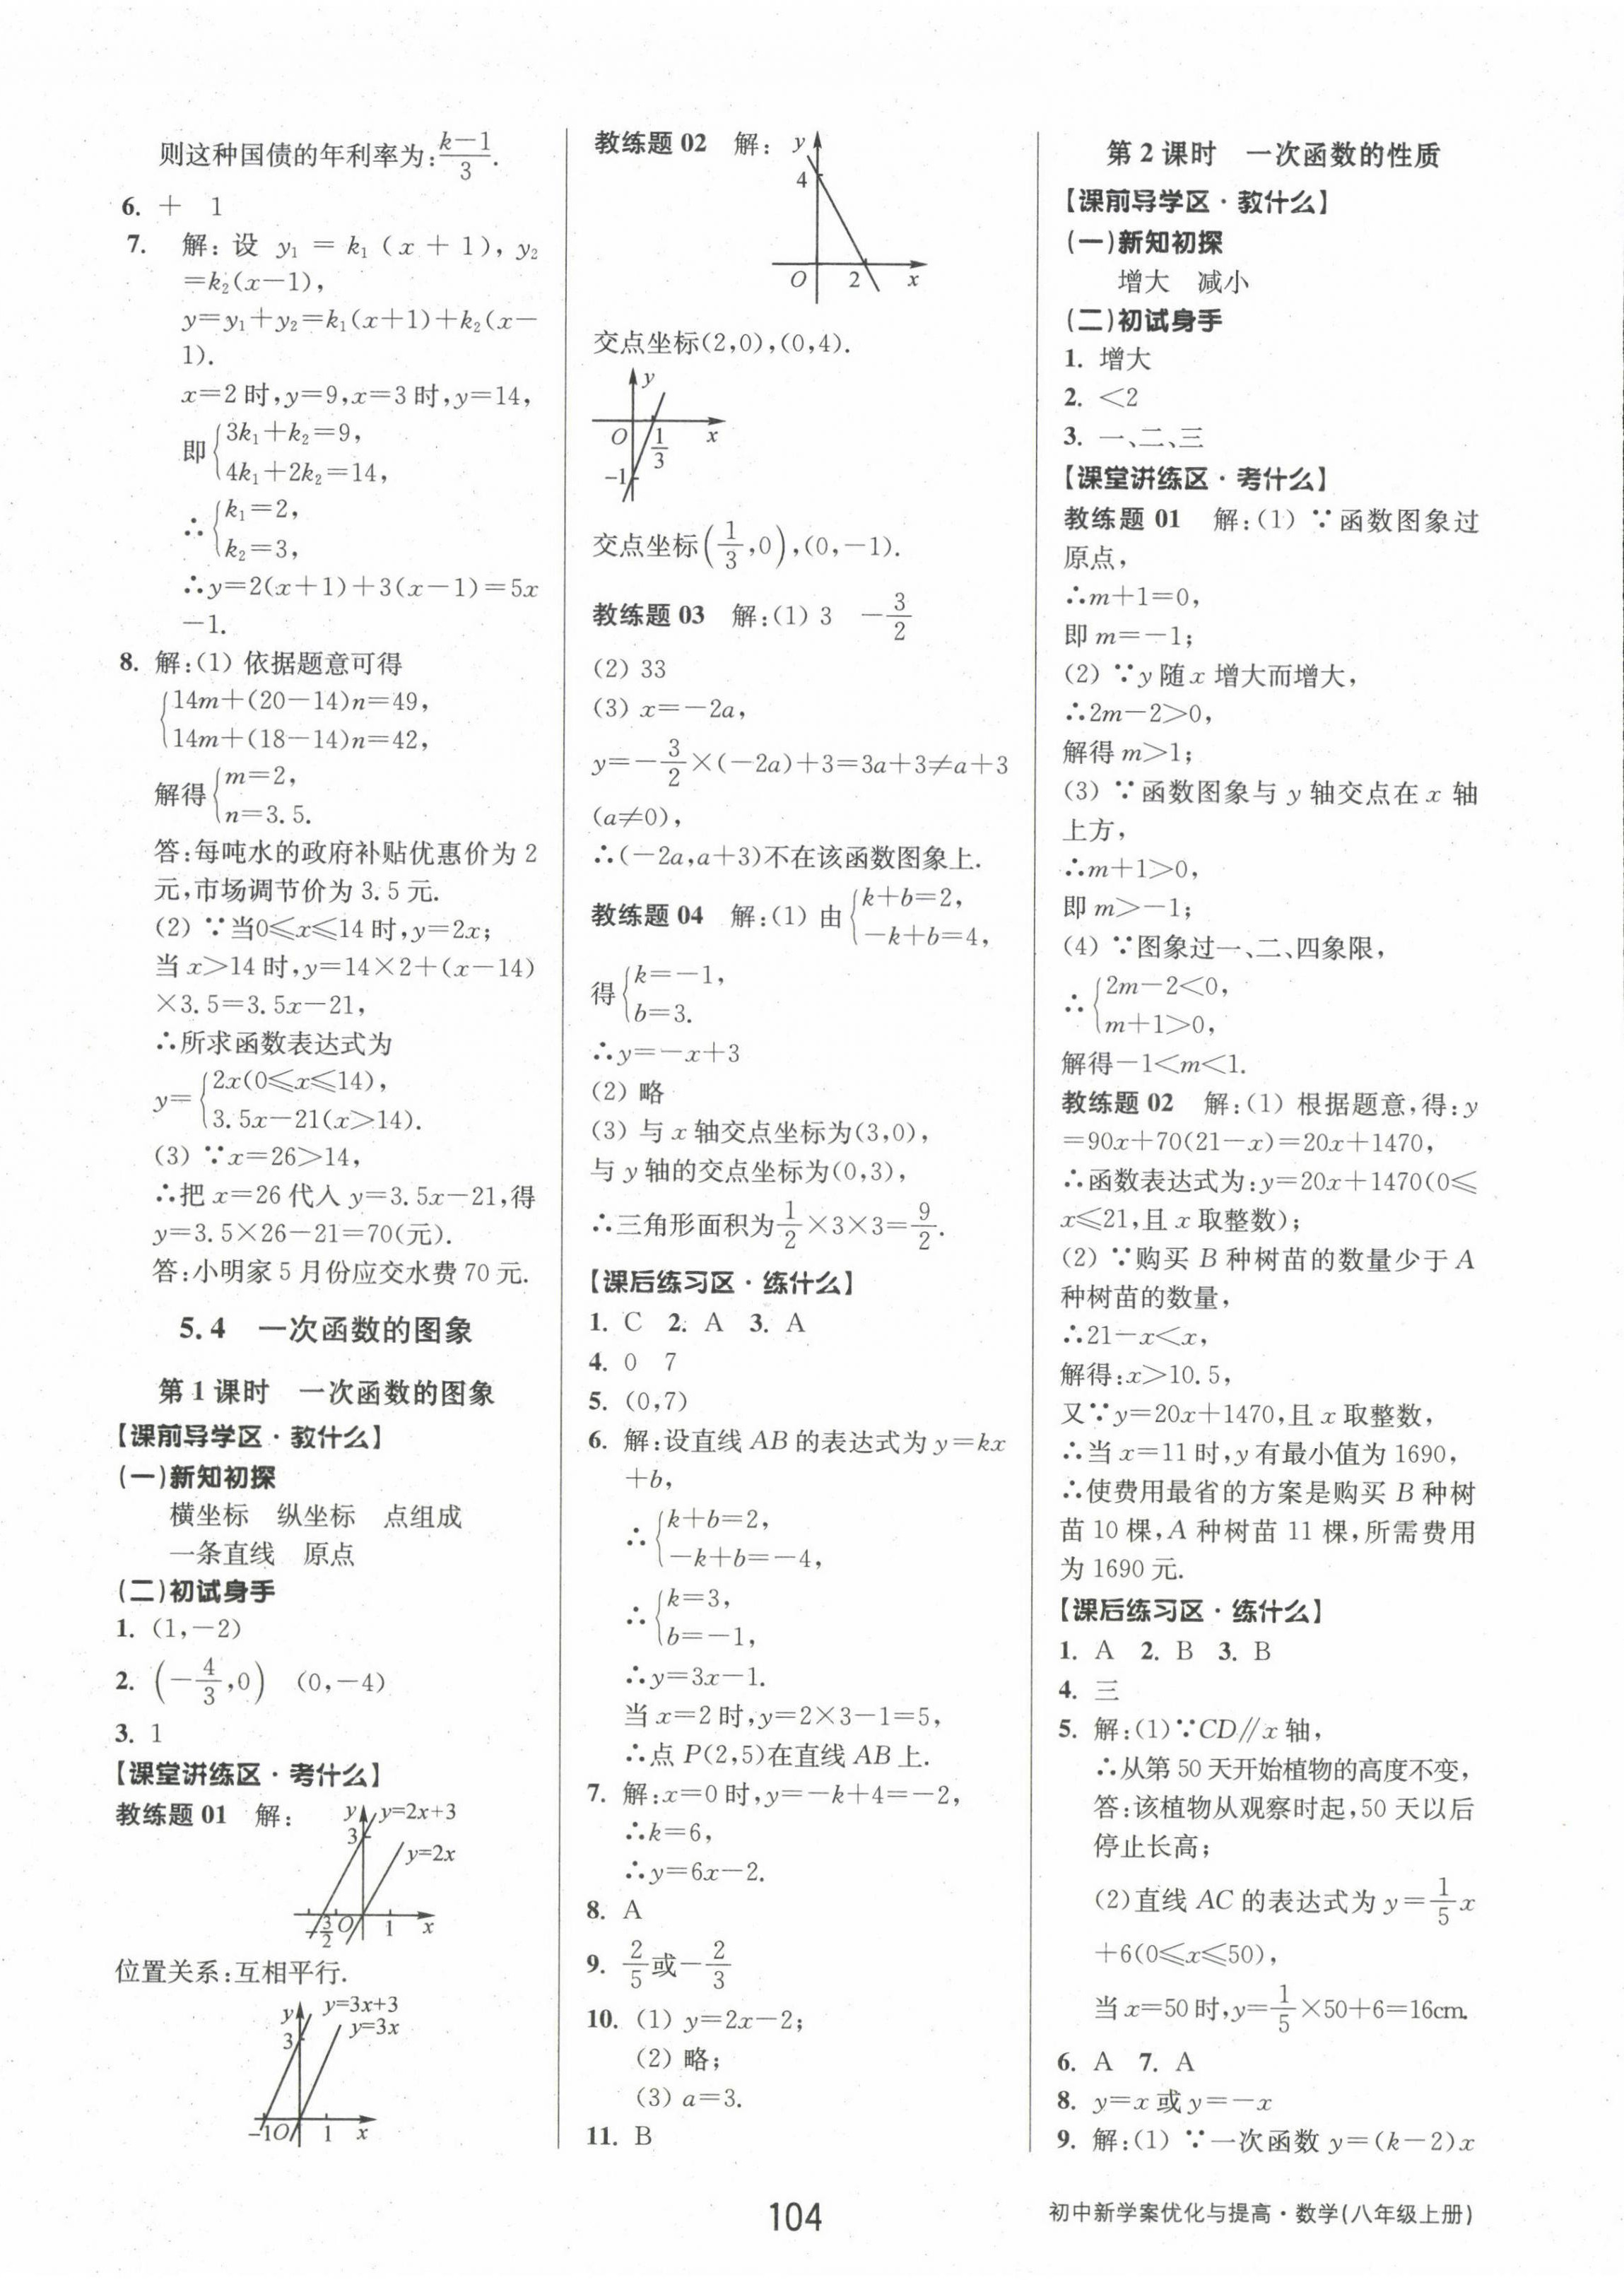 则这种国债的年利率为:$\frac{k-1}{3}$.
6. + 1
7. 解:设 y₁ = k₁ (x + 1), y₂
=k₂(x-1),
y=y₁+y₂=k₁(x+1)+k₂(x-
1).
x=2时,y=9,x=3时,y=14,
即{3k₁+k₂=9,
4k₁+2k₂=14,
∴{k₁=2,
k₂=3,
∴y=2(x+1)+3(x-1)=5x
-1.
8. 解:(1) 依据题意可得
{14m+(20-14)n=49,
14m+(18-14)n=42,
解得{m=2,
n=3.5.
答:每吨水的政府补贴优惠价为 2
元,市场调节价为 3.5 元.
(2) ∵当0⩽x⩽14时,y=2x;
当 x>14时,y=14×2+(x-14)
×3.5=3.5x-21,
∴所求函数表达式为
y={2x(0⩽x⩽14),
3.5x-21(x>14).
(3) ∵x=26>14,
∴把 x=26代入 y=3.5x-21,得
y=3.5×26-21=70(元).
答:小明家 5 月份应交水费 70 元.
5.4 一次函数的图象
第 1 课时 一次函数的图象
【课前导学区·教什么】
(一)新知初探
横坐标 纵坐标 点组成
一条直线 原点
(二)初试身手
1. (1,-2)
2. (-$\frac{4}{3}$,0) (0,-4)
3. 1
【课堂讲练区·考什么】
教练题 01 解:
y y=2x+3
3
y=2x
-$\frac{3}{2}$ O 1 x
位置关系:互相平行.
y y=3x+3
y=3x
3
-1 O 1 x
教练题 02 解:
y
4
O 2 x
交点坐标(2,0),(0,4).
y
O $\frac{1}{3}$ x
-1
交点坐标($\frac{1}{3}$,0),(0,-1).
教练题 03 解:(1) 3 -$\frac{3}{2}$
(2) 33
(3) x=-2a,
y=-$\frac{3}{2}$×(-2a)+3=3a+3≠a+3
(a≠0),
∴(-2a,a+3)不在该函数图象上.
教练题 04 解:(1) 由{k+b=2,
-k+b=4,
得{k=-1,
b=3.
∴y=-x+3
(2) 略
(3) 与 x 轴交点坐标为(3,0),
与 y 轴的交点坐标为(0,3),
∴三角形面积为$\frac{1}{2}$×3×3=$\frac{9}{2}$.
【课后练习区·练什么】
1. C 2. A 3. A
4. 0 7
5. (0,7)
6. 解:设直线 AB 的表达式为 y=kx
+b,
∴{k+b=2,
-k+b=-4,
∴{k=3,
b=-1,
∴y=3x-1.
当 x=2时,y=2×3-1=5,
∴点 P(2,5)在直线 AB 上.
7. 解:x=0时,y=-k+4=-2,
∴k=6,
∴y=6x-2.
8. A
9. $\frac{2}{5}$或-$\frac{2}{3}$
10. (1) y=2x-2;
(2) 略;
(3) a=3.
11. B
第 2 课时 一次函数的性质
【课前导学区·教什么】
(一)新知初探
增大 减小
(二)初试身手
1. 增大
2. <2
3. 一、二、三
【课堂讲练区·考什么】
教练题 01 解:(1) ∵函数图象过
原点,
∴m+1=0,
即 m=-1;
(2) ∵y 随 x 增大而增大,
∴2m-2>0,
解得 m>1;
(3) ∵函数图象与 y 轴交点在 x 轴
上方,
∴m+1>0,
即 m>-1;
(4) ∵图象过一、二、四象限,
∴{2m-2<0,
m+1>0,
解得-1<m<1.
教练题 02 解:(1) 根据题意,得:y
=90x+70(21-x)=20x+1470,
∴函数表达式为:y=20x+1470(0⩽
x⩽21,且 x 取整数);
(2) ∵购买 B 种树苗的数量少于 A
种树苗的数量,
∴21-x<x,
解得:x>10.5,
又∵y=20x+1470,且 x 取整数,
∴当 x=11时,y 有最小值为 1690,
∴使费用最省的方案是购买 B 种树
苗 10 棵,A 种树苗 11 棵,所需费用
为 1690 元.
【课后练习区·练什么】
1. A 2. B 3. B
4. 三
5. 解:(1)∵CD∥x 轴,
∴从第 50 天开始植物的高度不变,
答:该植物从观察时起,50 天以后
停止长高;
(2)直线 AC 的表达式为 y=$\frac{1}{5}$x
+6(0⩽x⩽50),
当 x=50时,y=$\frac{1}{5}$×50+6=16cm.
6. A 7. A
8. y=x 或 y=-x
9. 解:(1) ∵一次函数 y=(k-2)x
104
初中新学案优化与提高·数学(八年级上册)